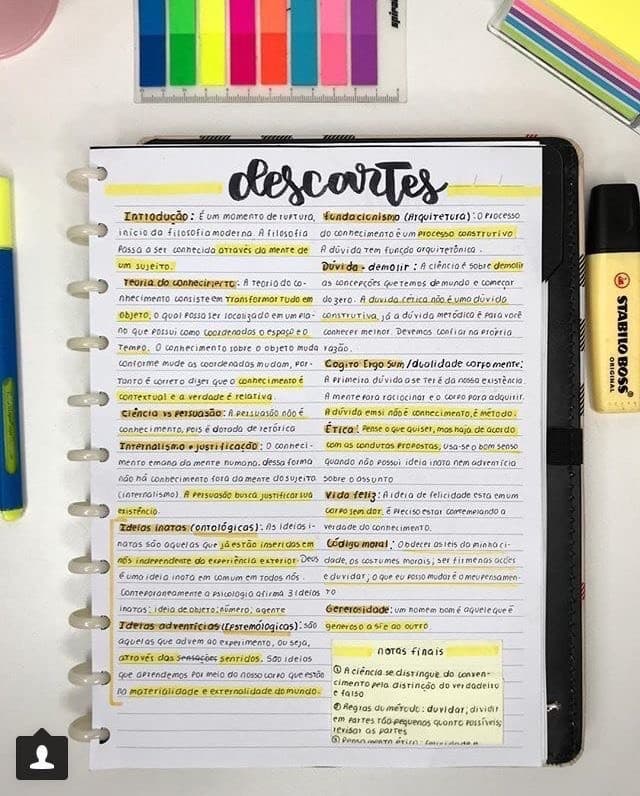 descartes
Introdução: É um momento de ruptura,
início da filosofia moderna. A filosofia
passa a ser conhecida através da mente de
um sujeito.
Teoria do conhecimento: A teoria do co-
nhecimento consiste em transformar tudo em
objeto, o qual possa ser localizado em um pla-
no que possui como coordenadas o espaço e o
tempo. O conhecimento sobre o objeto muda
conforme mude as coordenadas mudam, por-
tanto é correto dizer que o conhecimento é
contextual e a verdade é relativa.
Ciência vs persuasão: A persuasão não é
conhecimento, pois é dorada de retórica
Internalismo e justificação: O conheci-
mento emana da mente humana, dessa forma
não há conhecimento fora da mente do sujeito
(internalismo). A persuasão busca justificar sua
existência.
Ideias inatas (ontológicas): As ideias i-
natas são aquelas que já estão inseridas em
nós independente da experiência exterior. Deus
é uma ideia inata em comum em todos nós.
Contemporaneamente a psicologia afirma 3 ideias
inatas: ideia de objeto; número; agente
Ideias adventícias (Epistemológicas): são
aquelas que advem ao experimento, ou seja,
através das sensações sentidos. São ideias
que aprendemos por meio do nosso corpo que estão
na materialidade e externalidade do mundo.
fundacionismo (Arquitetura): O processo
do conhecimento é um processo construtivo
A dúvida tem função arquitetônica.
Dúvida - demolir: A ciência é sobre demolir
as concepções que temos de mundo e começar
do zero. A duvida cética não é uma dúvida
construtiva, já a dúvida metódica é para você
conhecer melhor. Devemos confiar na própria
razão.
Cogito Ergo Sum/dualidade corpo mente:
A primeira dúvida a se ter é da nossa existência.
A mente para raciocinar e o corpo para adquirir.
A dúvida em si não é conhecimento, é método.
Ética: Pense o que quiser, mas haja de acordo
com as condutas propostas, usa-se o bom senso
quando não possui ideia inata nem adventícia
sobre o assunto
Vida feliz: A ideia de felicidade esta em um
corpo sem dor. é preciso estar contemplando a
verdade do conhecimento.
Código moral: Obdecer as leis da minha ci-
dade, os costumes morais; ser firme nas acões
e duvidar; o que eu posso mudar é o meu pensamen-
to
Generosidade: um homem bom é aquele que é
generoso a si e ao outro
notas finais
① A ciência se distingue do conven-
cimento pela distinção do verdadeiro
e falso
② Regras do método: duvidar; dividir
em partes tão pequenas quanto possíveis;
revisar as partes
③ Pensamento ético: felicidade e
STABILO BOSS
ORIGINAL